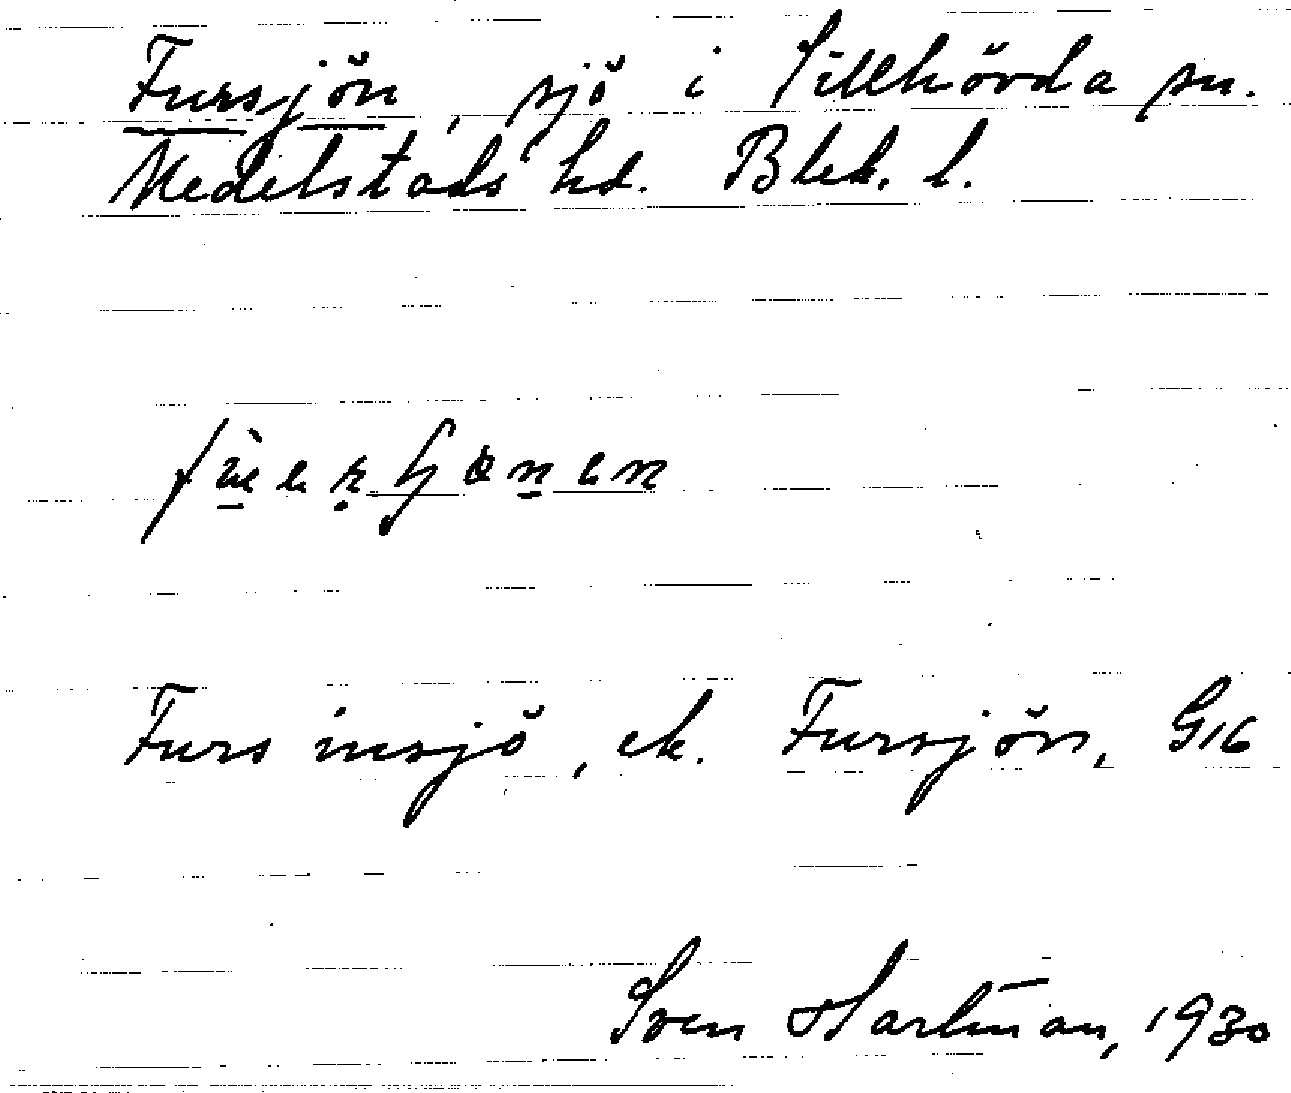 Fursjön, sjö i Sillhövda sn.
Medelstads hd. Blek. l.
Furs insjö, ek. Fursjön, G16
Sven Hartman, 1930